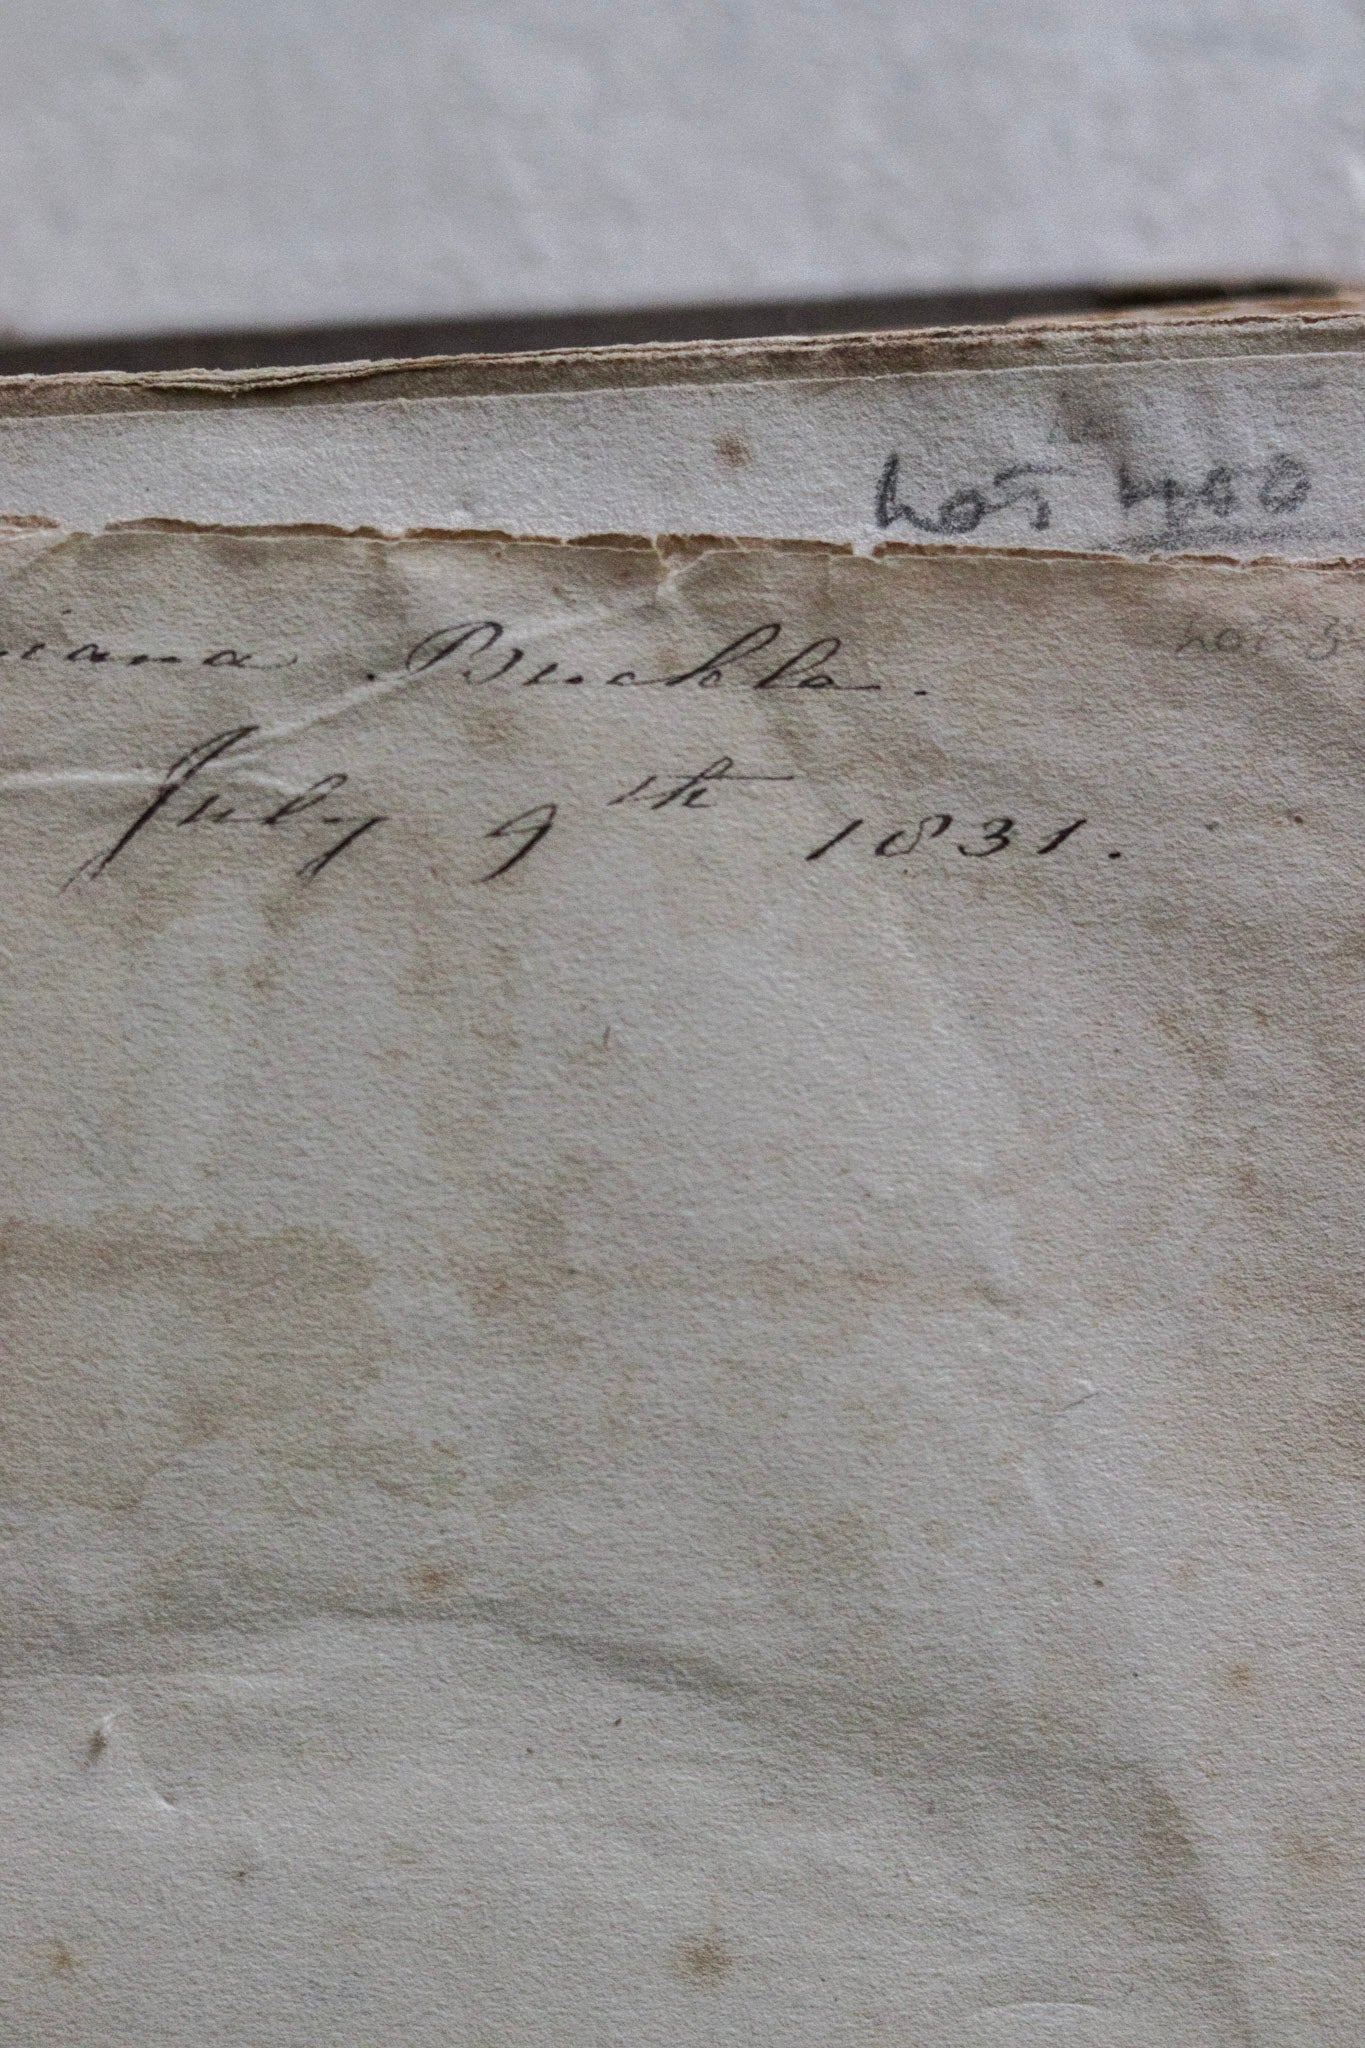 Lot 400
Lot 3
iana Buckle.
July 9th 1831.